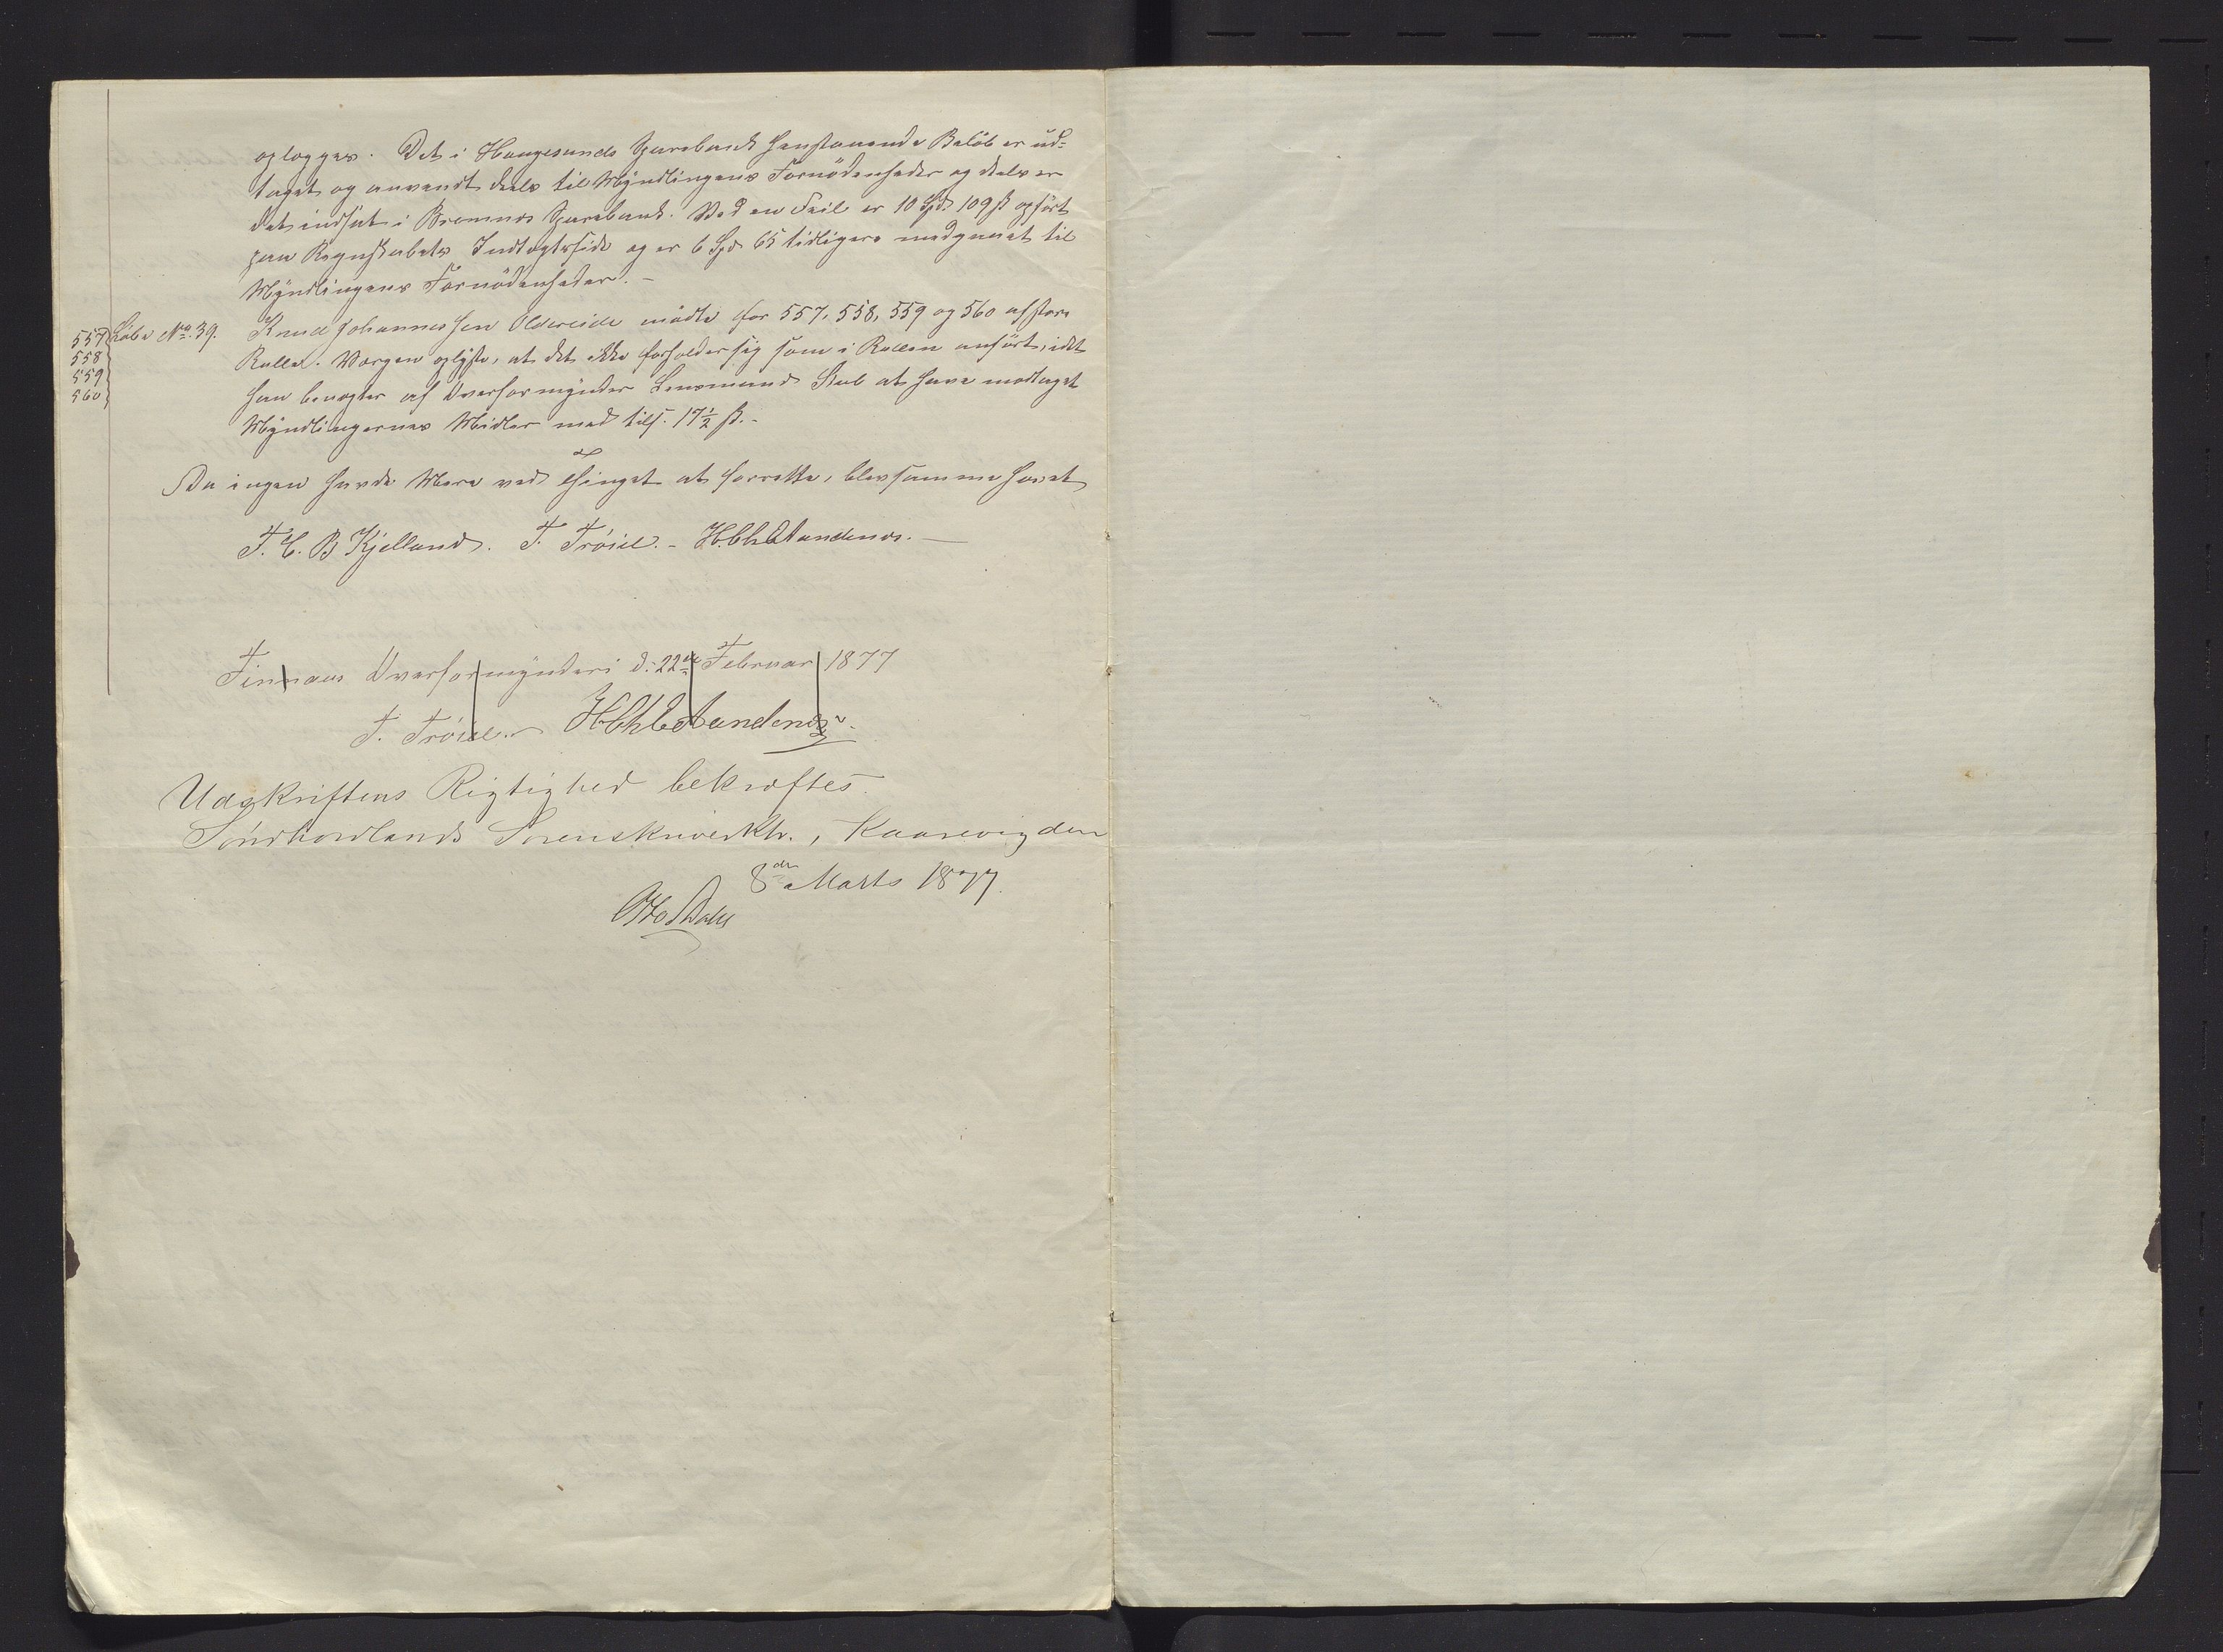 oplægges. Det i Haugesunds Sparebank henstaaende Beløb er ud-
taget og anvendt deels til Myndlingens Fornødenheder og deels er
det indsat i Bremnes Sparebank. Ved en Feil er 10 Spd 109 ß opført
paa Regnskabets Indtægtsside og er 6 Spd 65 tidligere medgaaet til
Myndlingens Fornødenheder. –
557 Løbe No. 39. Knud Johannessen Oldereide mødte for 557, 558, 559 og 560 af store
558 Rulle. Værgen oplyste, at det ikke forholder sig som i Rullen anført, idet
559 han benegter af Overformynder Lensmand Køl at have modtaget
560 Myndlingernes Midler med tils. 17½ ß. –
Da ingen havde Mere ved Thinget at forrette, blev samme hævet
T. C. B Kjelland. T. Trøiel. – H.
Finnaas Overformynderi d. 22de Februar 1877
T. Trøiel. –
Udskriftens Rigtighed bekræftes.
Søndhordlands Sorenskriverktr., Kaarevig den
8de Marts 1877.